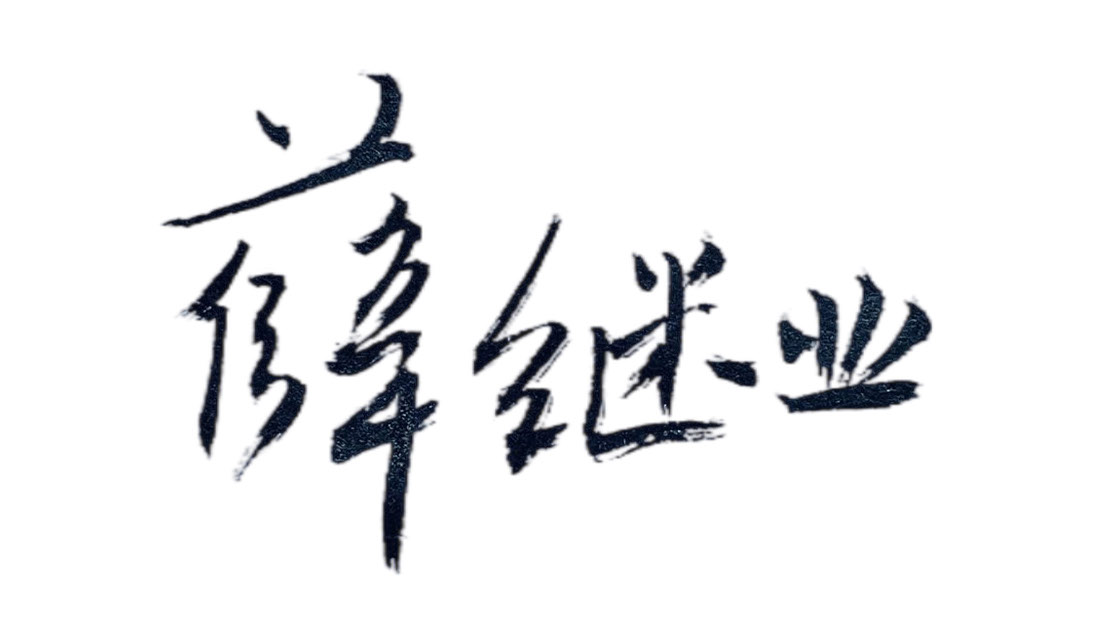 薛继业